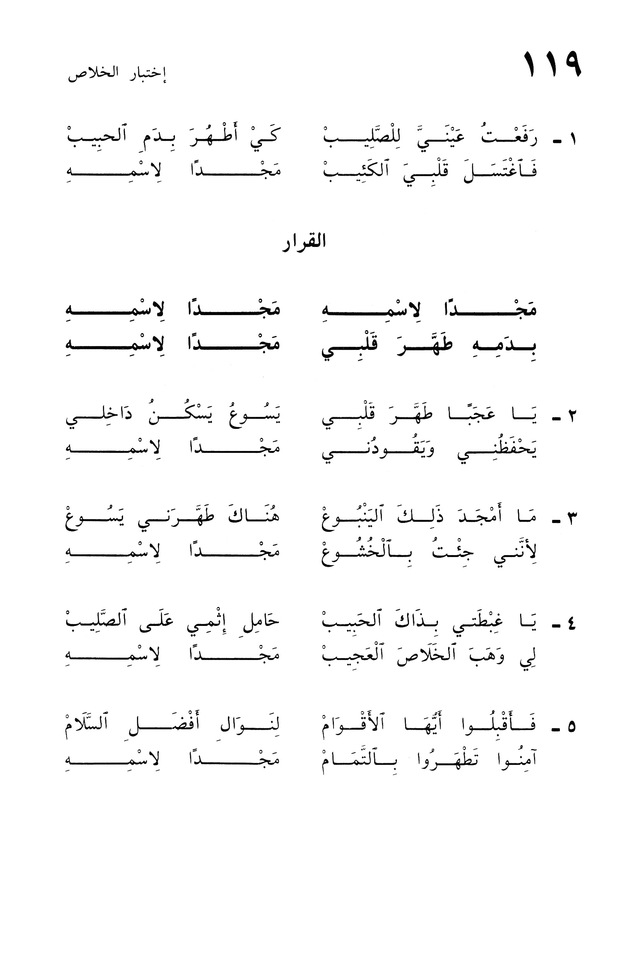 ١١٩
إختبار الخلاص
١ - رَفَعْتُ عَيْنَيَّ لِلْصَّلِيبْ كَيْ أَطْهُرَ بِدَمِ ٱلحَبِيبْ
فَٱغْتَسَلَ قَلْبِيَ ٱلكَئِيبْ مَجْدًا لِاسْمِهِ
القرار
مَجْدًا لِاسْمِهِ مَجْدًا لِاسْمِهِ
بِدَمِهِ طَهَّرَ قَلْبِي مَجْدًا لِاسْمِهِ
٢ - يَا عَجَبًا طَهَّرَ قَلْبِي يَسُوعُ يَسْكُنُ دَاخِلِي
يَحْفَظُنِي وَيَقُودُنِي مَجْدًا لِاسْمِهِ
٣ - مَا أَمْجَدَ ذَلِكَ ٱليَنْبُوعْ هُنَاكَ طَهَّرَني يَسُوعْ
لِأَنَّنِي جِئْتُ بِٱلْخُشُوعْ مَجْدًا لِاسْمِهِ
٤ - يَا غِبْطَتي بِذَاكَ ٱلحَبِيبْ حَامِلِ إِثْمِي عَلَى ٱلصَّلِيبْ
لِي وَهَبَ ٱلخَلَاصَ ٱلْعَجِيبْ مَجْدًا لِاسْمِهِ
٥ - فَأَقْبِلُوا أَيُّهَا ٱلأَقْوَامْ لِنَوَالِ أَفْضَلِ ٱلسَّلَامْ
آمِنُوا تَطْهَرُوا بِٱلتَّمَامْ مَجْدًا لِاسْمِهِ